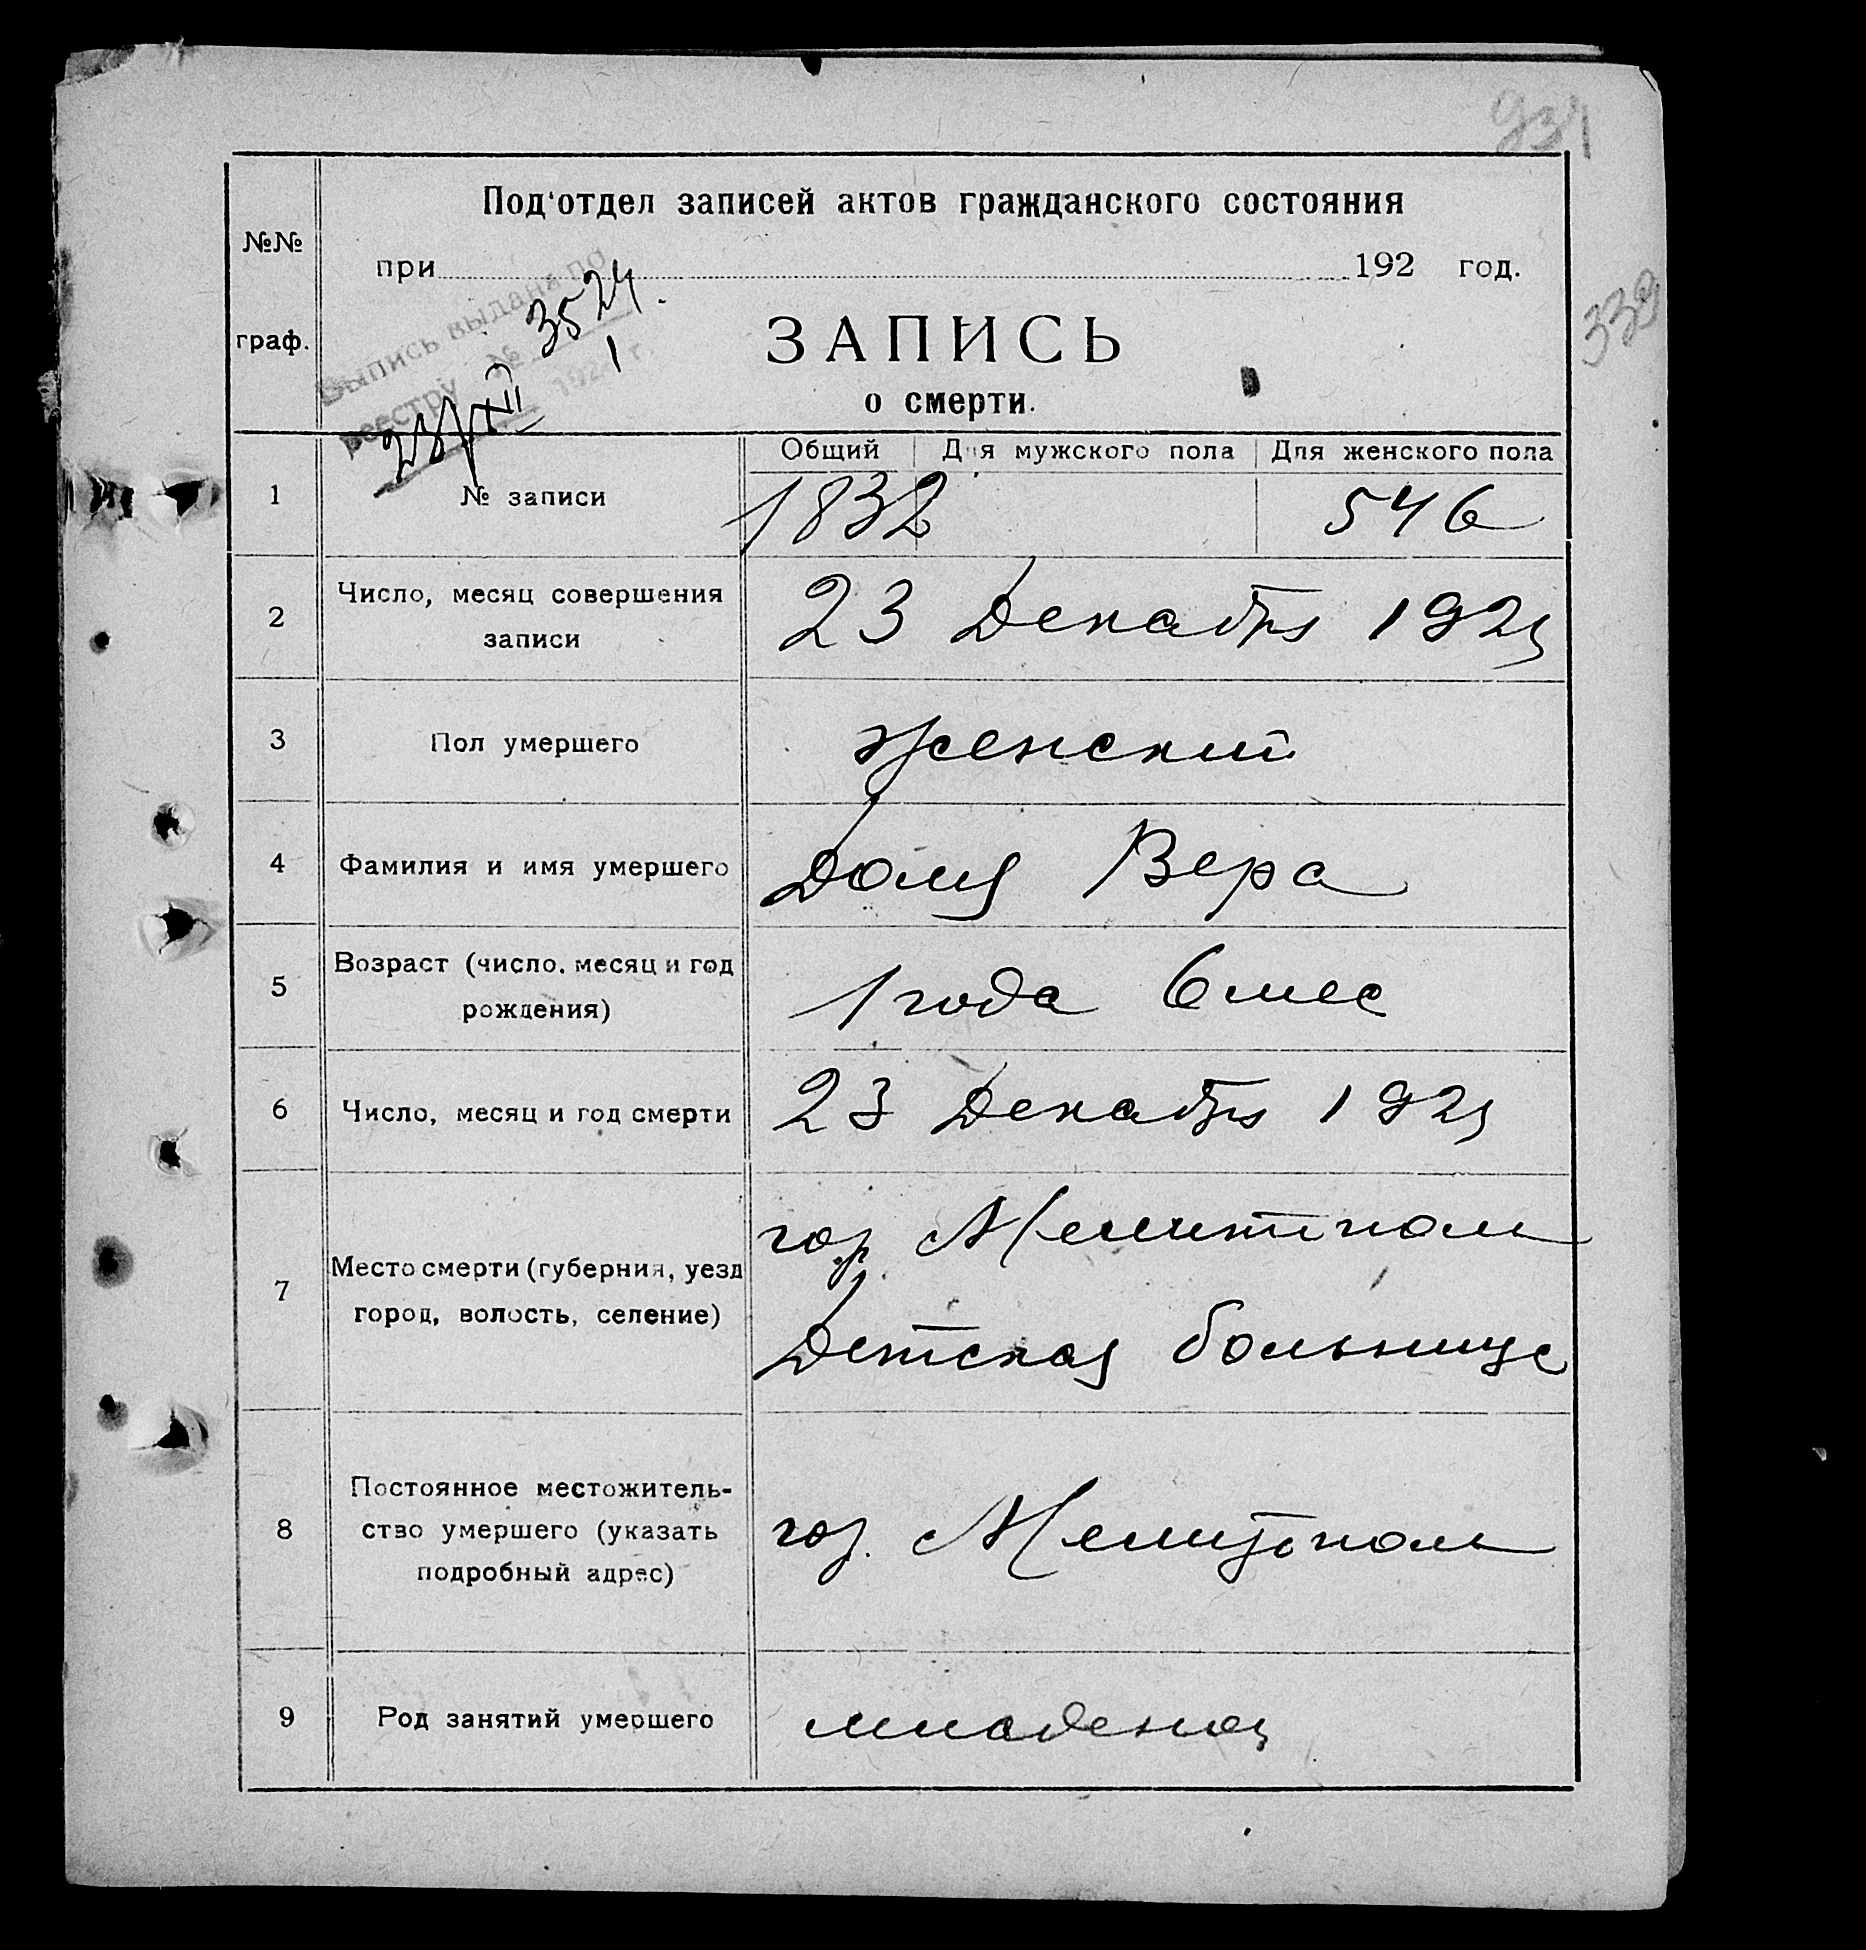 931
Под'отдел записей актов гражданского состояния
№№
при 192 год.
339
Выпись выдана по
реестру № 3524
192 г.
граф.
ЗАПИСЬ
о смерти.
Общий Для мужского пола Для женского пола
1 № записи 1832 546
2 Число, месяц совершения
записи
23 Декабря 1921
3 Пол умершего Женский
4 Фамилия и имя умершего Доля Вера
5 Возраст (число, месяц и год
рождения)
1 года 6 мес
6 Число, месяц и год смерти 23 Декабря 1921
7 Место смерти (губерния, уезд
город, волость, селение)
гор. Мелитополь
Детская больнице
8 Постоянное местожитель-
ство умершего (указать
подробный адрес)
гор. Мелитополь
9 Род занятий умершего младенец